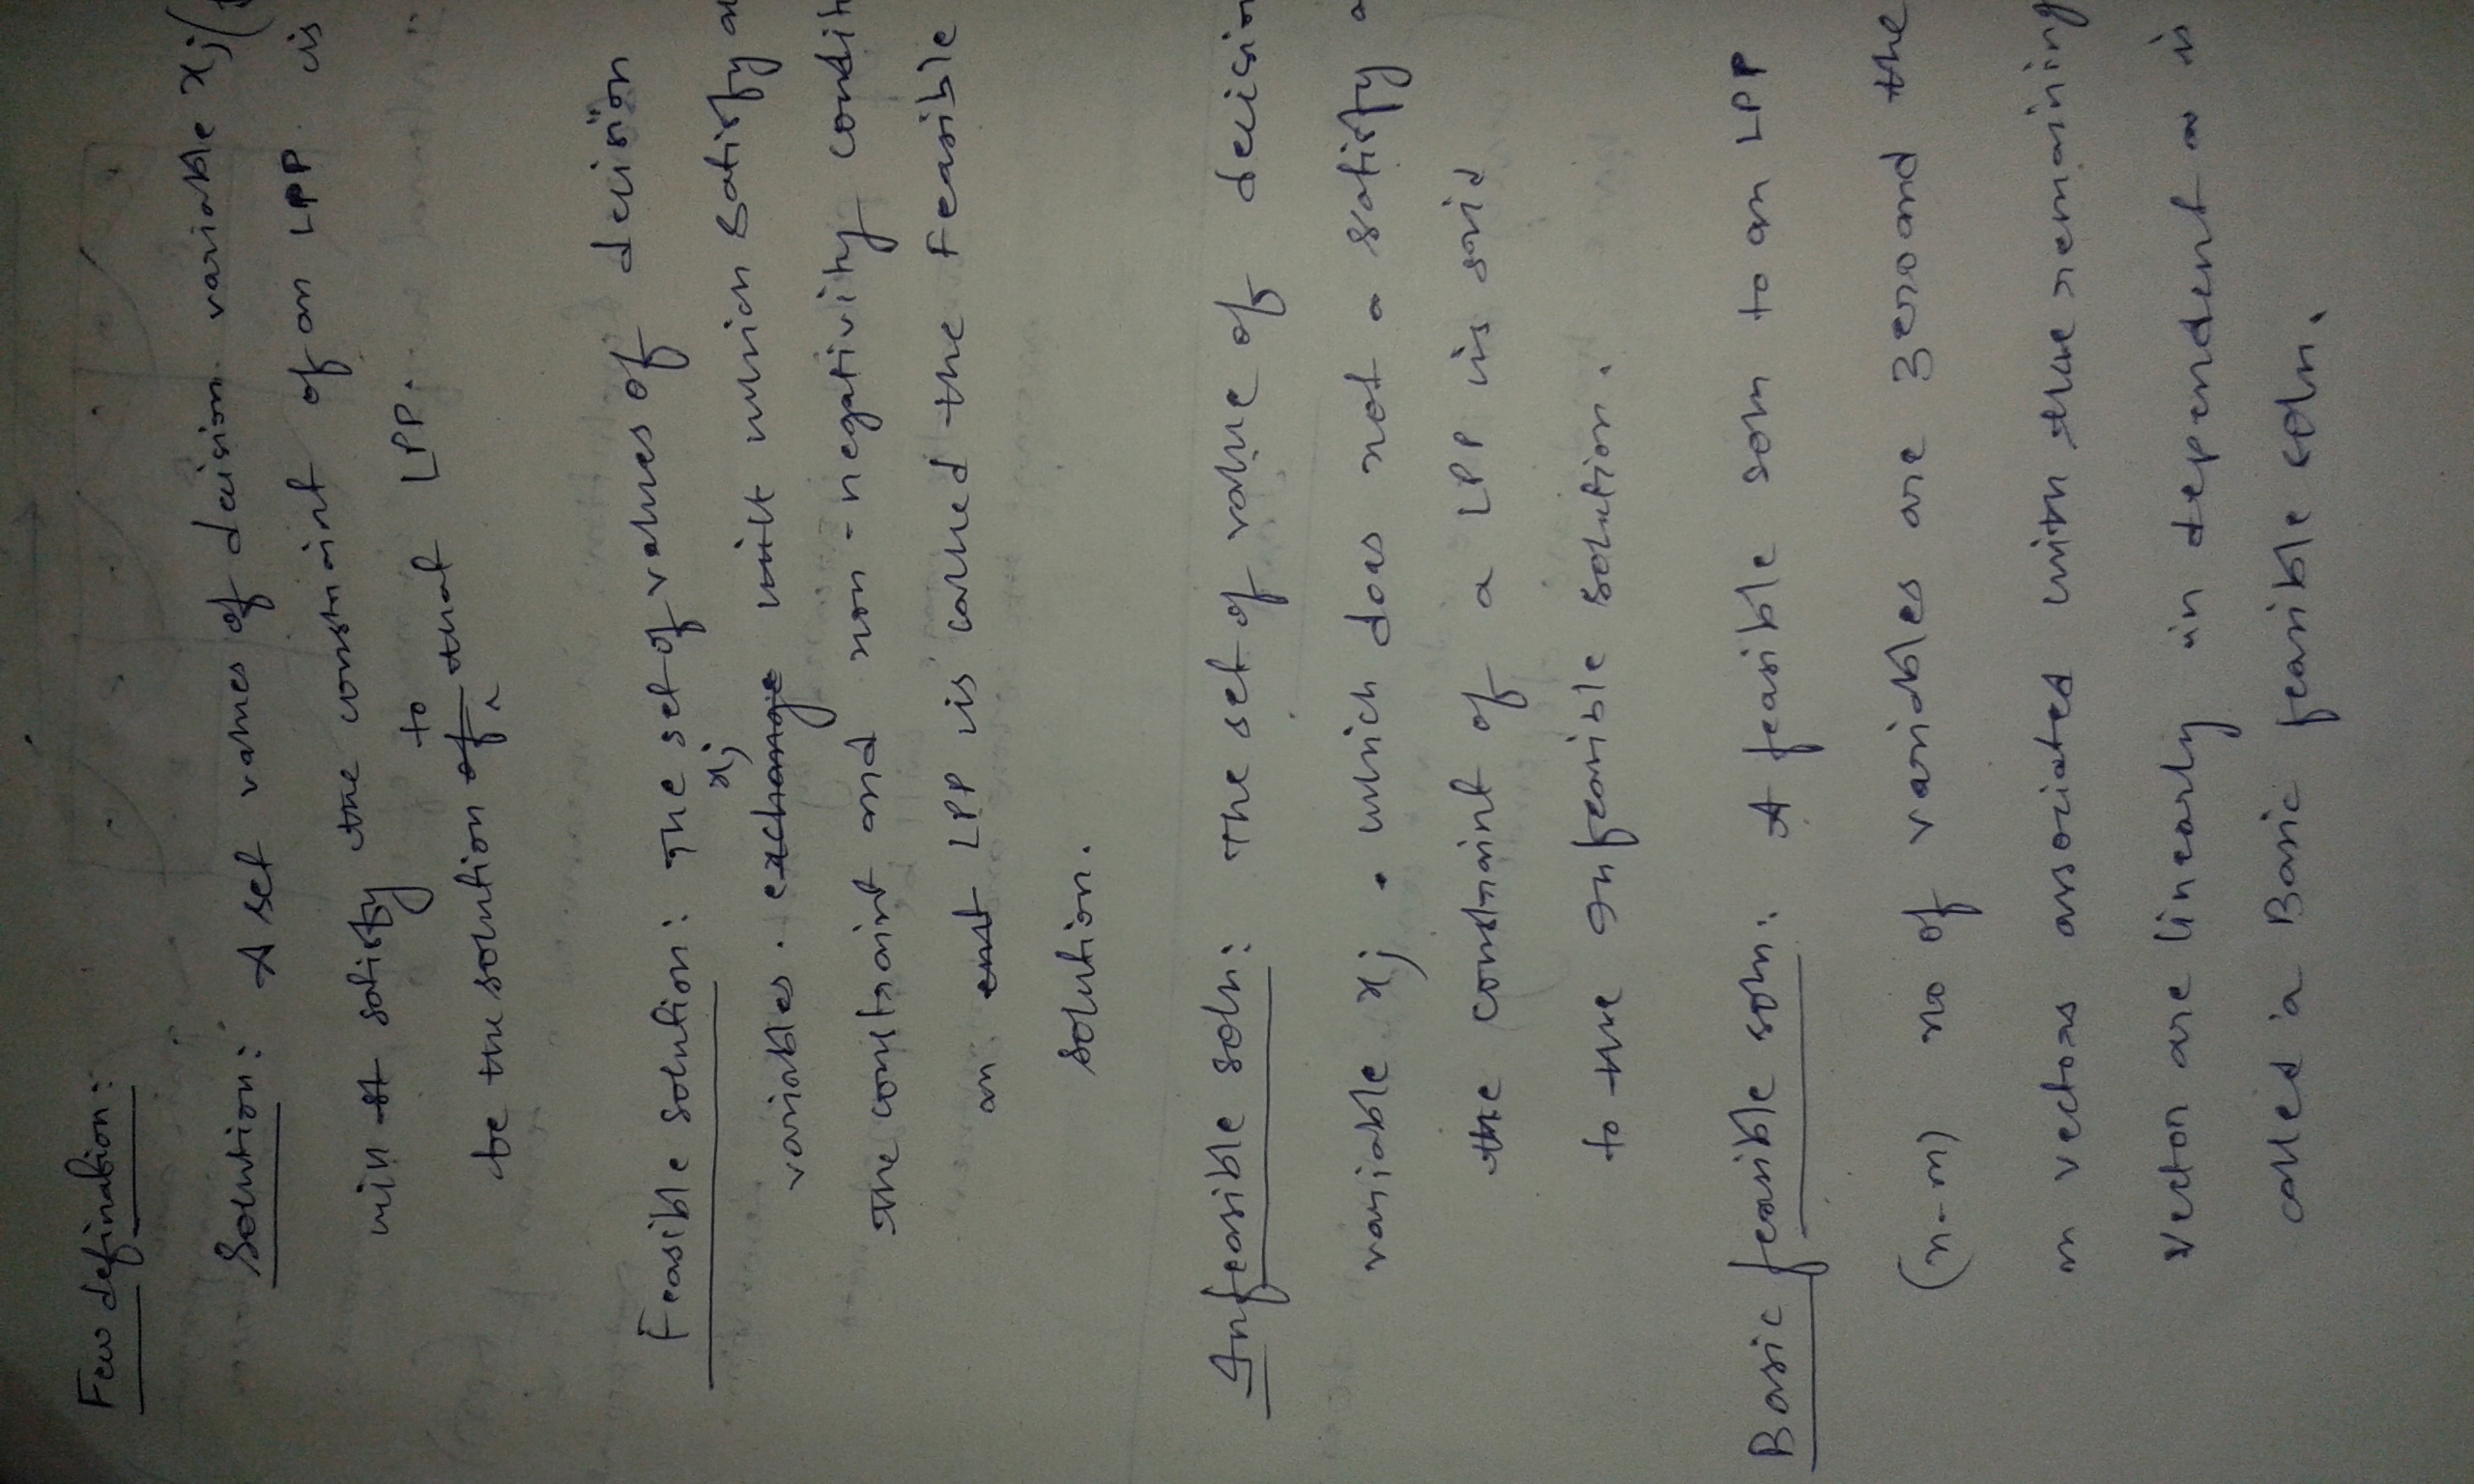 Few defination:
Solution: A set values of decision variable xj(
will st satisfy the constraint of an LPP is
to
be the solution of ^ that LPP.
Feasible solution: The set of values of decision
xj
variables. exchange which satisfy
the constraint and non-negativity condit
an LPP is called the Feasible
solution.
Infeasible soln: The set of value of decision
variable xj . which does not a satisfy a
the constraint of a LPP is said
to the Infeasible solution.
Basic feasible soln: A feasible soln to an LPP
(n-m) no of variables are zero and the
m vectors associated with the remaining
Vector are linearly in dependent is
called a Basic feasible soln.